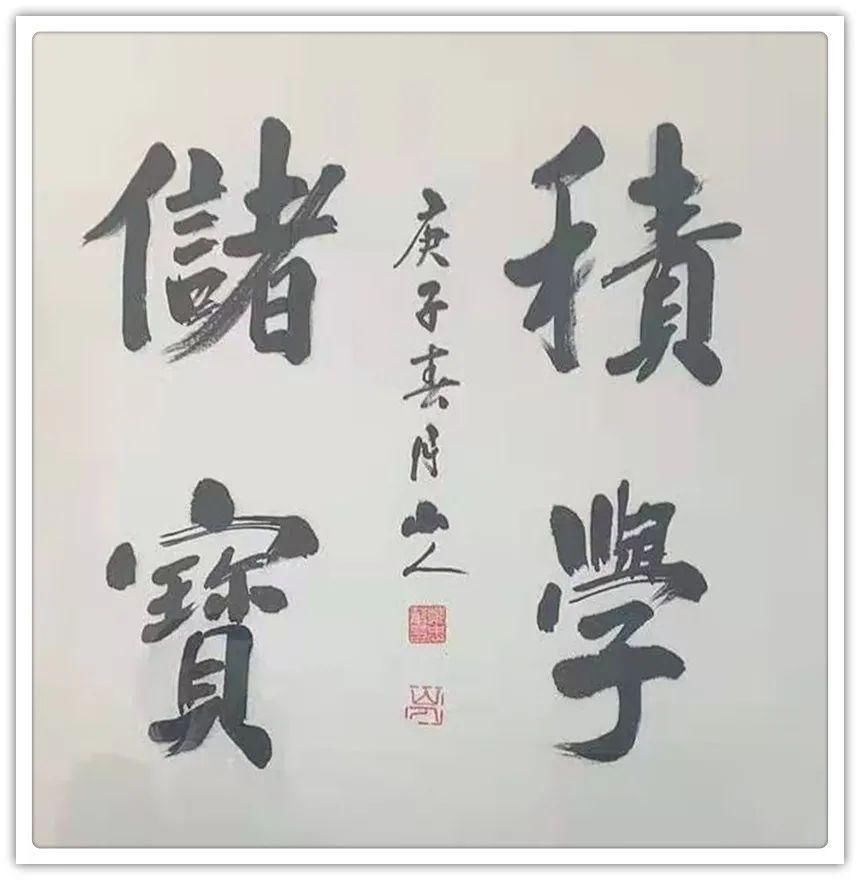 積學
儲寶
庚子春月山人